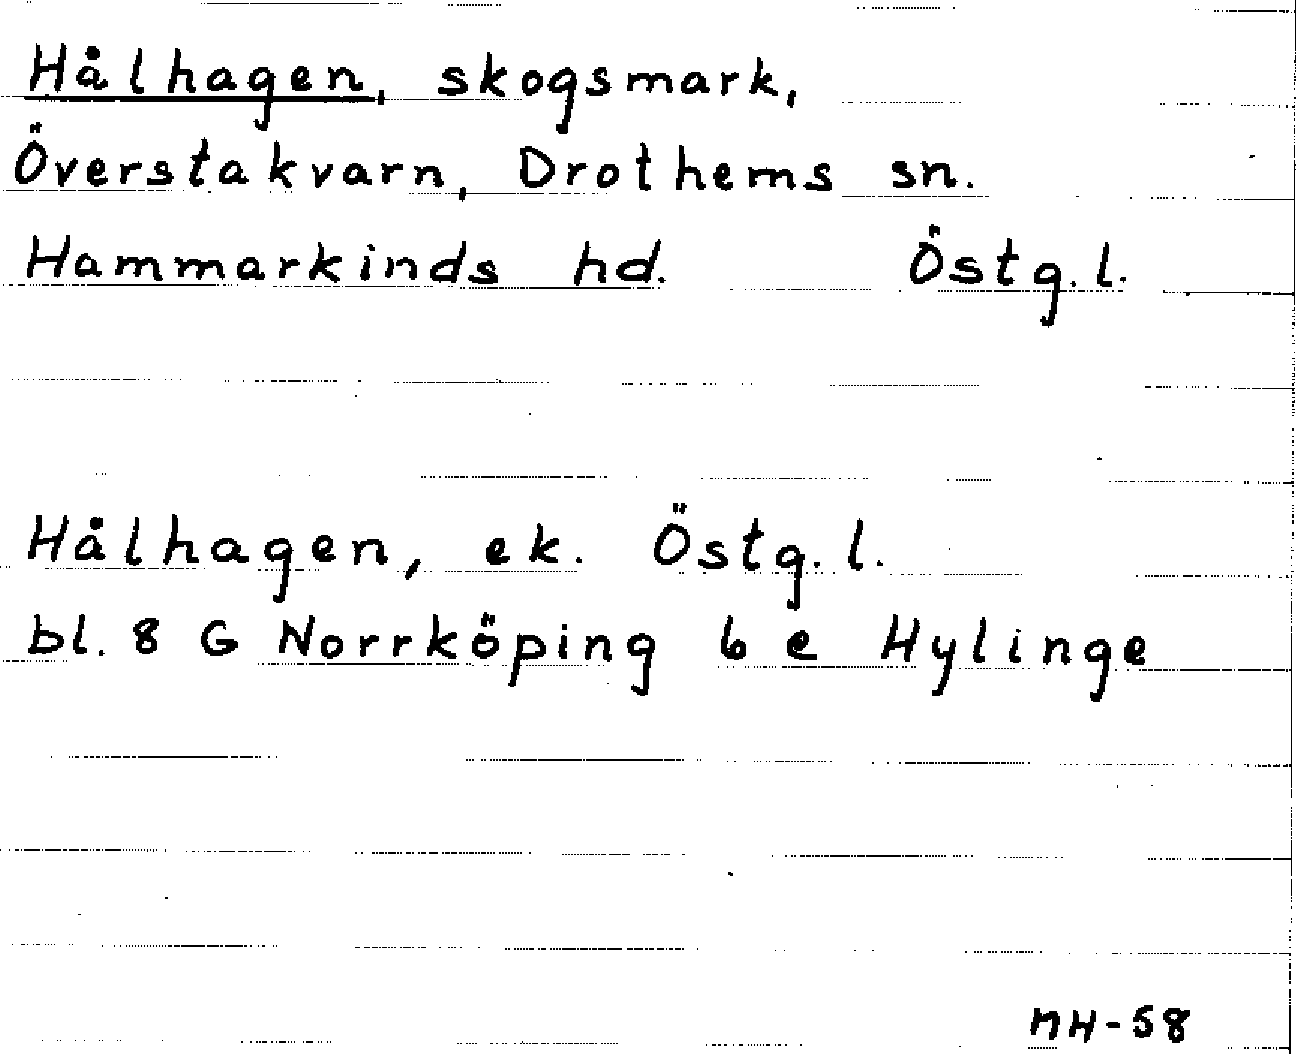 Hålhagen, skogsmark,
Överstakvarn, Drothems sn.
Hammarkinds hd. Östg.l.
Hålhagen, ek. Östg.l.
bl. 8 G Norrköping 6 e Hylinge
NH-58